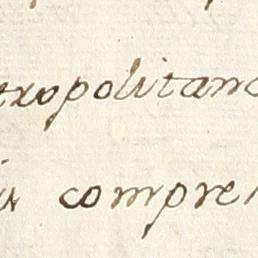 tropolitano
in compre